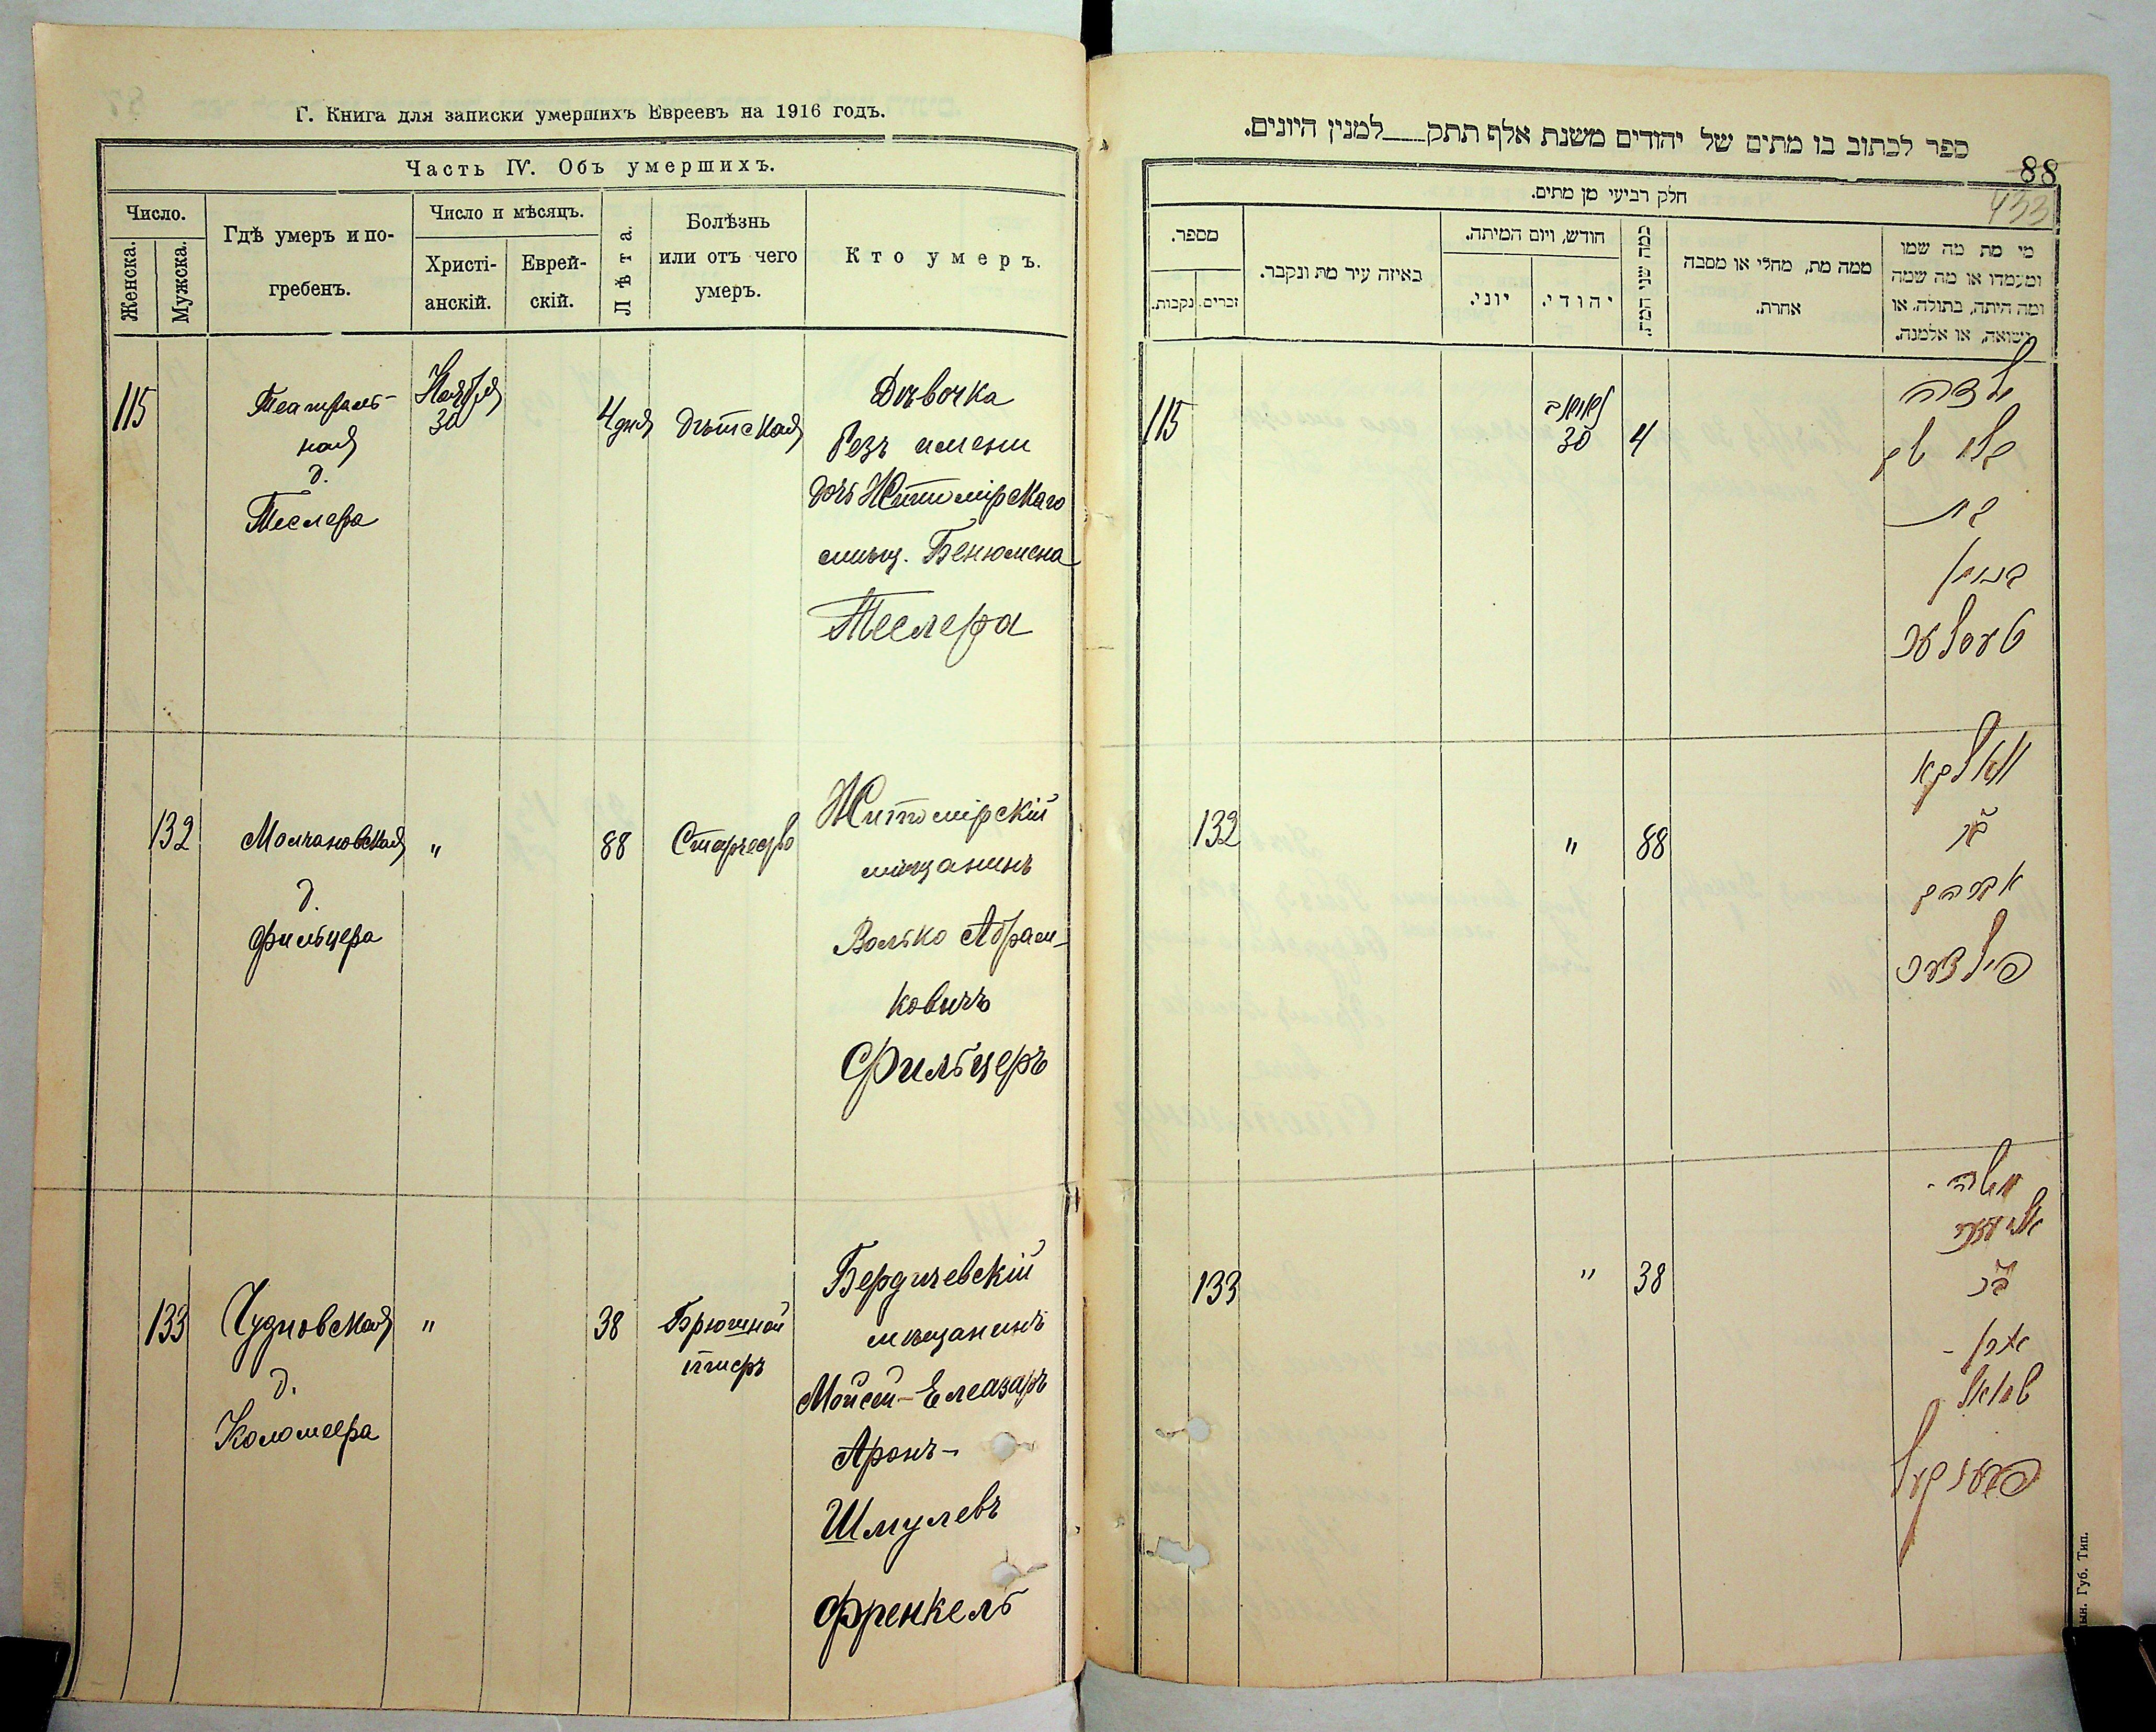 Г. Книга для записки умершихъ Евреевъ на 1916 годъ.
Часть IV. Объ умершихъ.
Число.
Женска.
Мужска.
Гдѣ умеръ и по-
гребенъ.
Число и мѣсяцъ.
Христі-
анскій.
Еврей-
скій.
Лѣта.
Болѣзнь
или отъ чего
умеръ.
Кто умеръ.
115
Театраль-
ная
д.
Теслера
Ноября
30
4 дня
Дѣтская
Дѣвочка
безъ имени
дочь Житомірскаго
мѣщ. Бенюмена
Теслера
132
Молчановская
д.
Фильцера
"
88
Старчество
Житомірскій
мѣщанинъ
Волько Абрам-
ковичъ
Фильцеръ
133
Чудновская
д.
Коломеера
"
38
Брюшной
тифъ
Бердичевскій
мѣщанинъ
Мойсей-Елеазаръ
Аронъ-
Шмулевъ
Френкель
ספר לכתוב בו מתים של יהודים משנת אלף תתק למנין היונים.
88
433
חלק רביעי מן מתים.
מספר.
זכרים.
נקבות.
באיזה עיר מת ונקבר.
חודש, ויום המיתה.
יוני.
יהודי.
כמה שני המת.
ממה מת, מחלי או מסבה
אחרת.
מי מת מה שמו
ומעמדו או מה שמה
ומה היתה, בתולה, או
נשואה, או אלמנה.
115
30
4
ילדה
בלי שם
בת
בנימין
טעסלער
132
"
88
וואלקא
בר
אברהם
פילצער
133
"
38
משה -
אליעזר
בר
אהרן -
שמואל
פרענקעל
Губ. Тип.